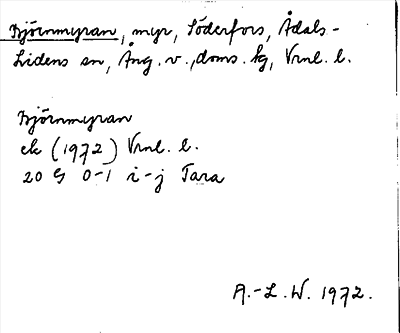 Björnmyran, myr, Söderfors, Ådals-
Lidens sn, Ång. v., doms. hg, Vrnl. l.
Björnmyran
ek (1972) Vrnl. l.
20 G 0-1 i-j Tara
A.-L. W. 1972.